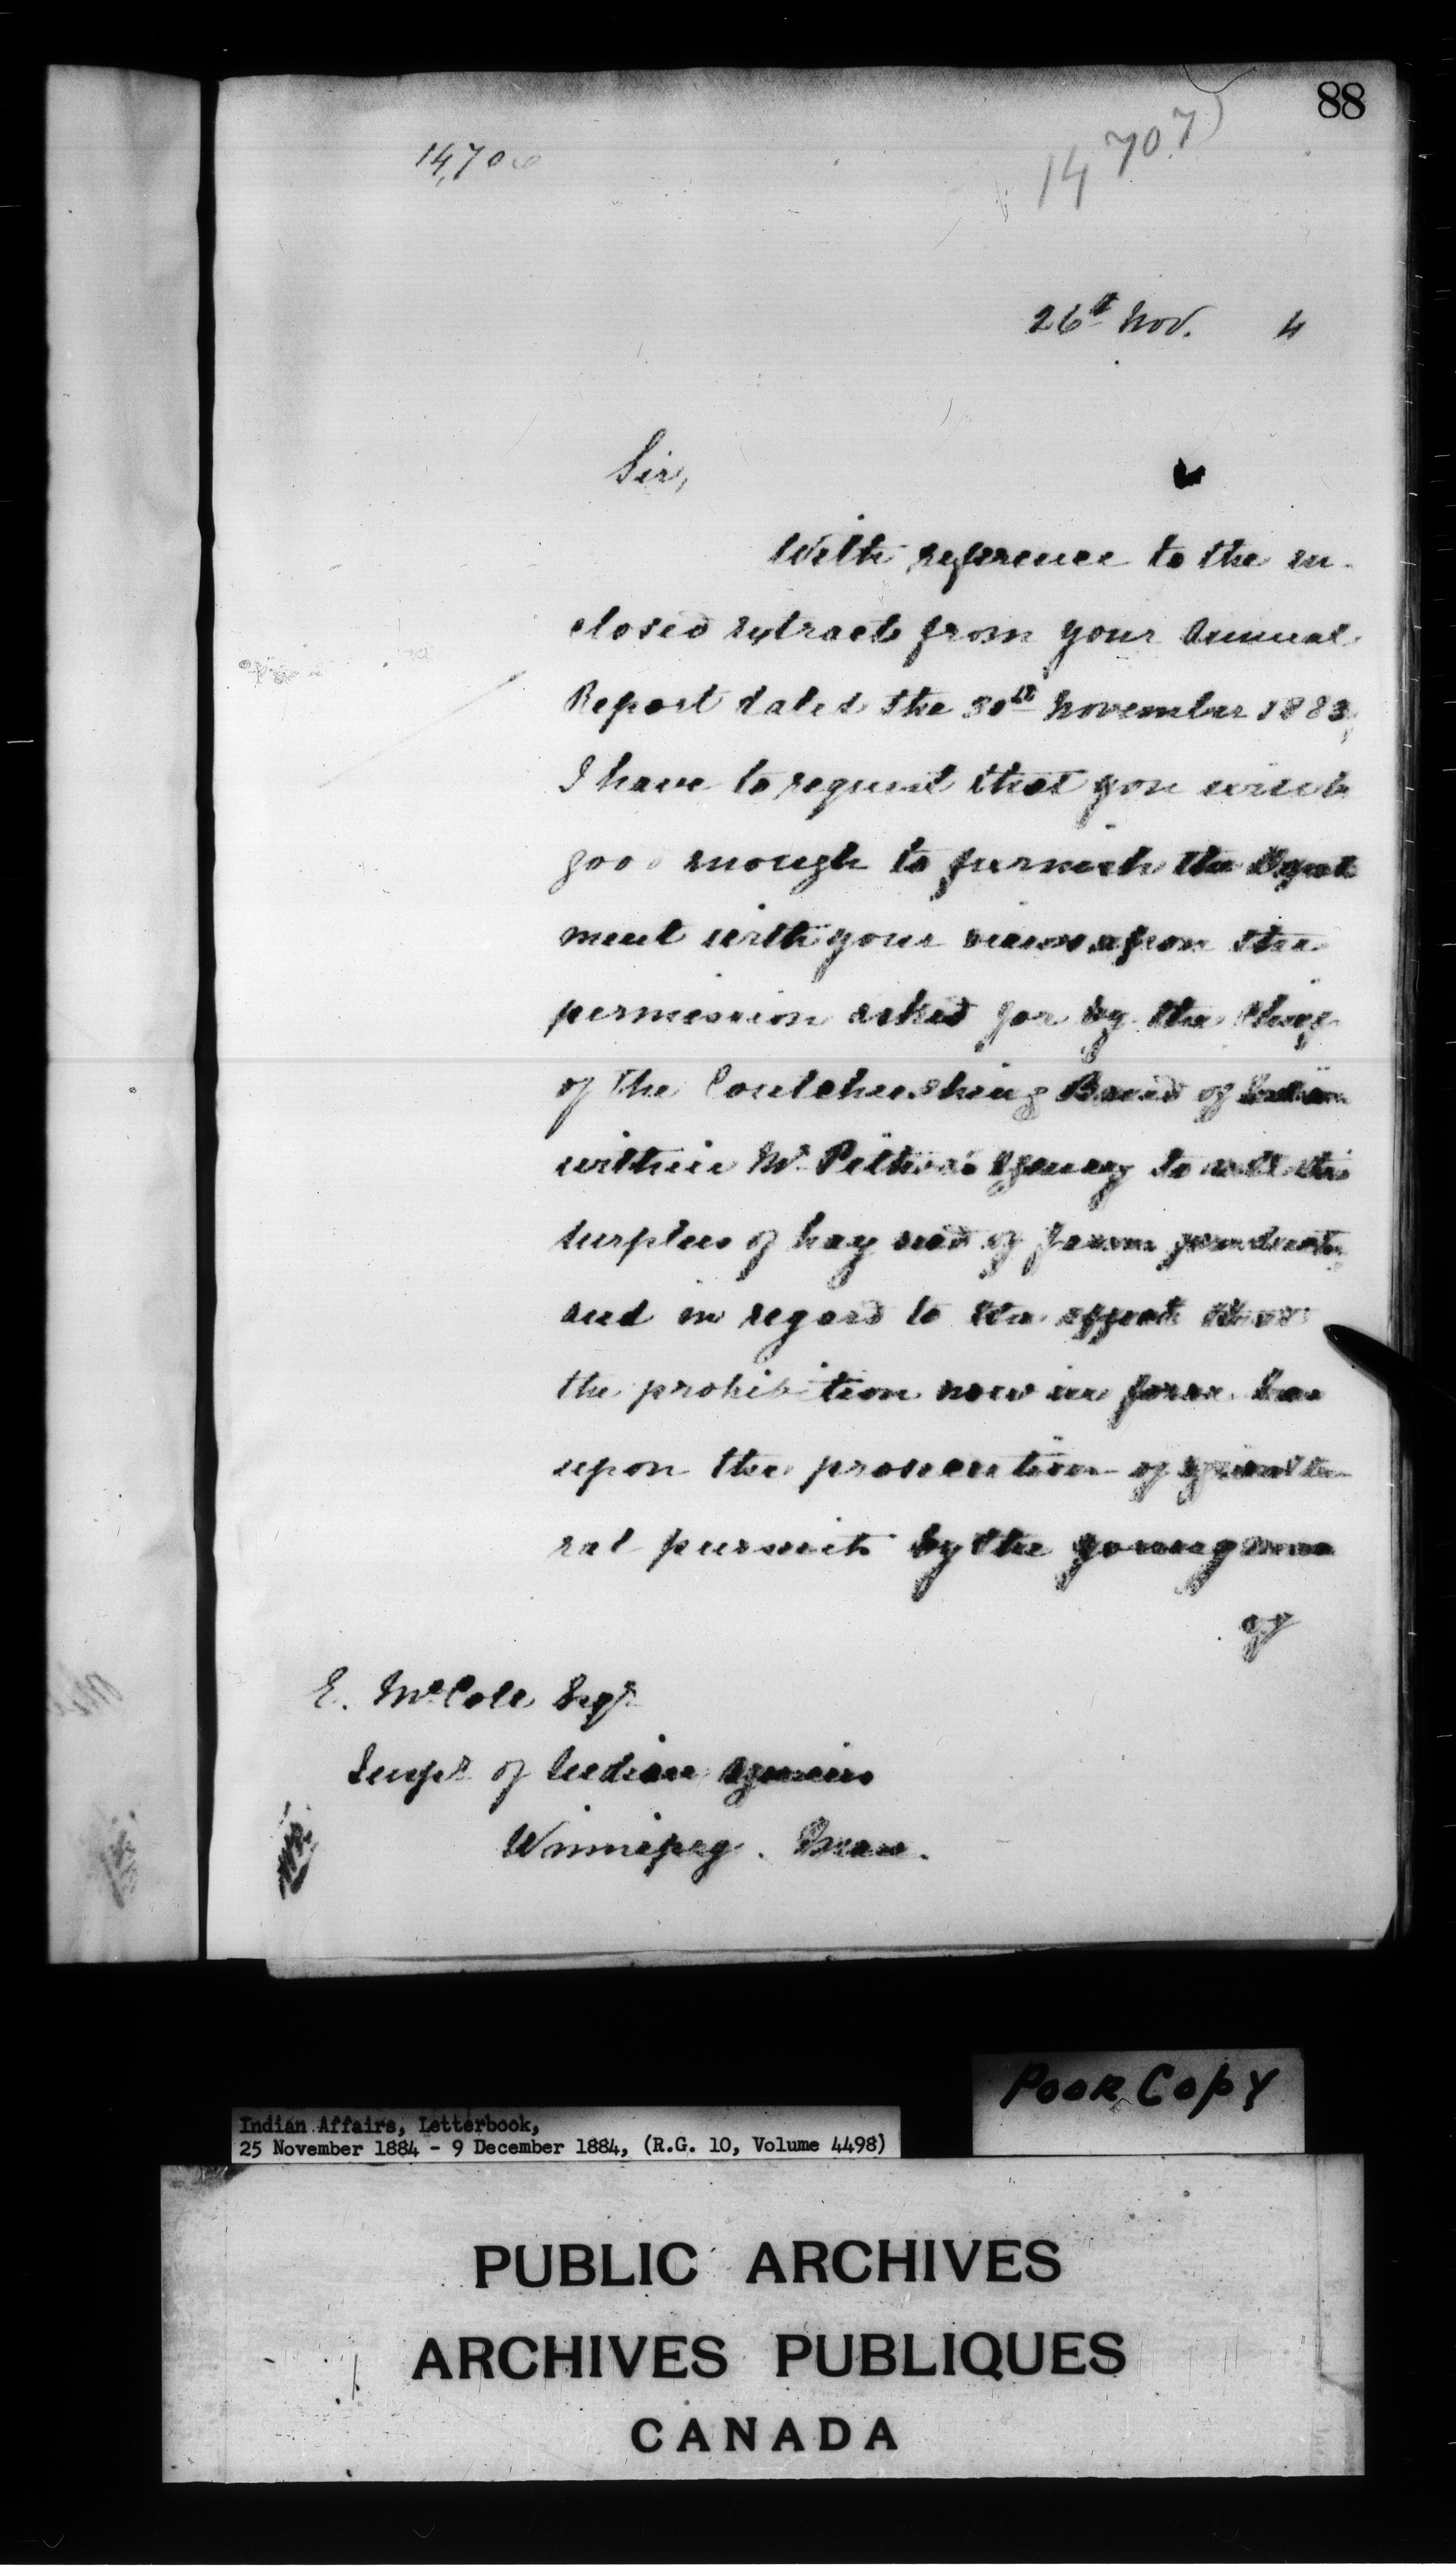 88
14,70
14707
26th Nov. 4
Sir,
With reference to the en-
closed extract from your Annual
Report dated the 30th November 1883,
I have to request that you will be
good enough to furnish the Depart
ment with your views upon the
permission asked for by the Chief
of the Coutcheeching Band of Indians
within Mr Pither's Agency to sell the
surplus of hay and of farm products,
and in regard to the effect
the prohibition now in force has
upon the prosecution of agricultu
ral pursuits by the young men
of
E. McColl Esqr
Supt of Indian Agencies
Winnipeg. Man.
Poor Copy
Indian Affairs, Letterbook,
25 November 1884 - 9 December 1884, (R.G. 10, Volume 4498)
PUBLIC ARCHIVES
ARCHIVES PUBLIQUES
CANADA